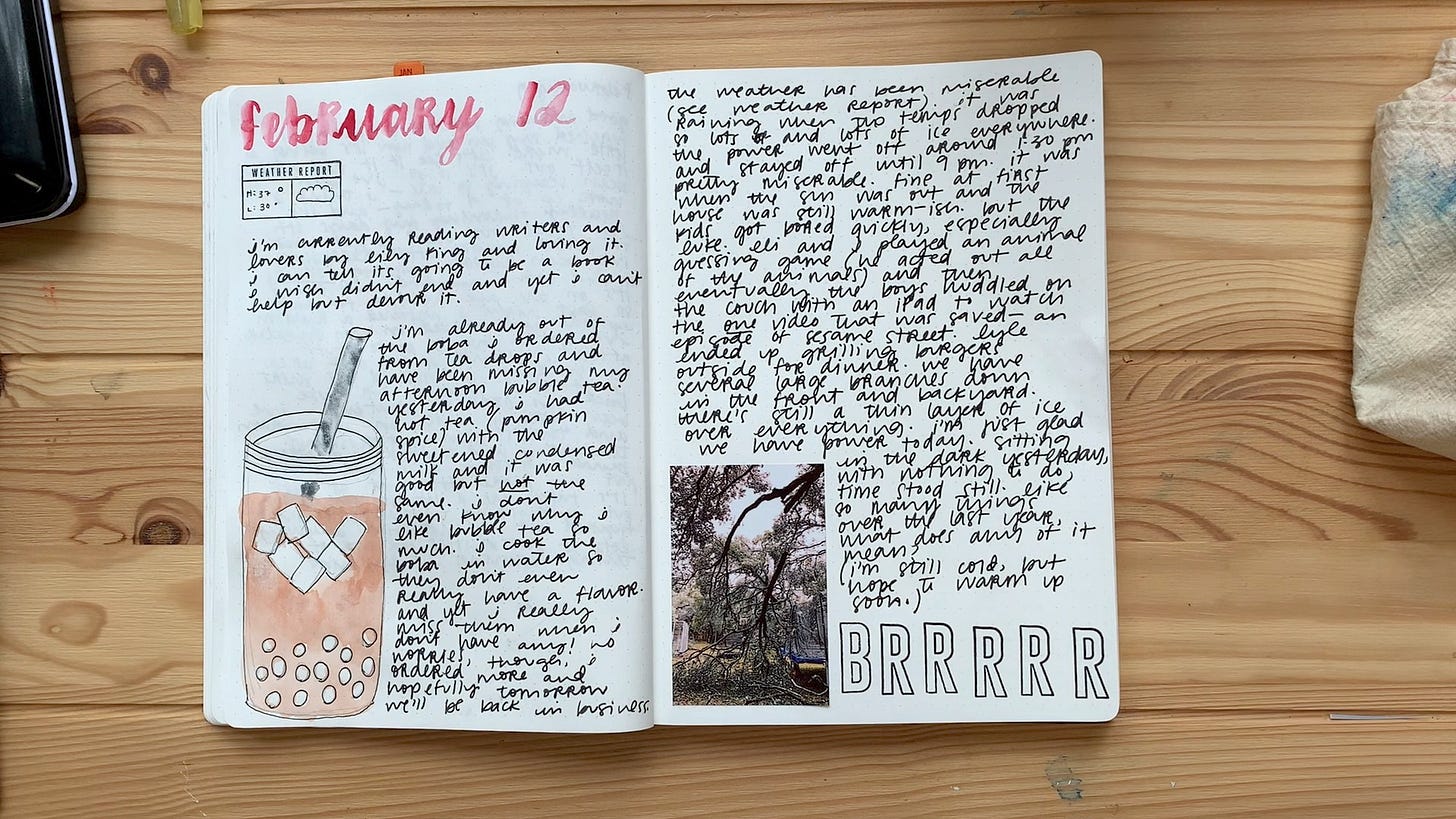 JAN
february 12
WEATHER REPORT
H: 37°
L: 30°
i'm currently reading writers and
lovers by lily king and loving it.
i can tell its going to be a book
i wish didn't end and yet i can't
help but devour it.
i'm already out of
the boba i ordered
from tea drops and
have been missing my
afternoon bubble tea.
yesterday i had
hot tea (pumpkin
spice) with the
sweetened condensed
milk and it was
good but not the
same. i don't
even know why i
like bubble tea so
much. i cook the
boba in water so
they don't even
really have a flavor.
and yet i really
miss them when i
don't have any! no
worries, though, i
ordered more and
hopefully tomorrow
we'll be back in business.
the weather has been miserable
(see weather report). it was
raining when the temps dropped
so lots and lots of ice everywhere.
the power went off around 1:30 pm
and stayed off until 9 pm. it was
pretty miserable. fine at first
when the sun was out and the
house was still warm-ish. but the
kids got bored quickly, especially
luke. eli and i played an animal
guessing game (we acted out all
of the animals) and then
eventually the boys huddled on
the couch with an ipad to watch
the one video that was saved — an
episode of sesame street. lyle
ended up grilling burgers
outside for dinner. we have
several large branches down
in the front and backyard.
there's still a thin layer of ice
over everything. i'm just glad
we have power today. sitting
in the dark yesterday,
with nothing to do,
time stood still. like
so many things
over the last year,
what does any of it
mean?
(i'm still cold, but
hope to warm up
soon.)
BRRRRR